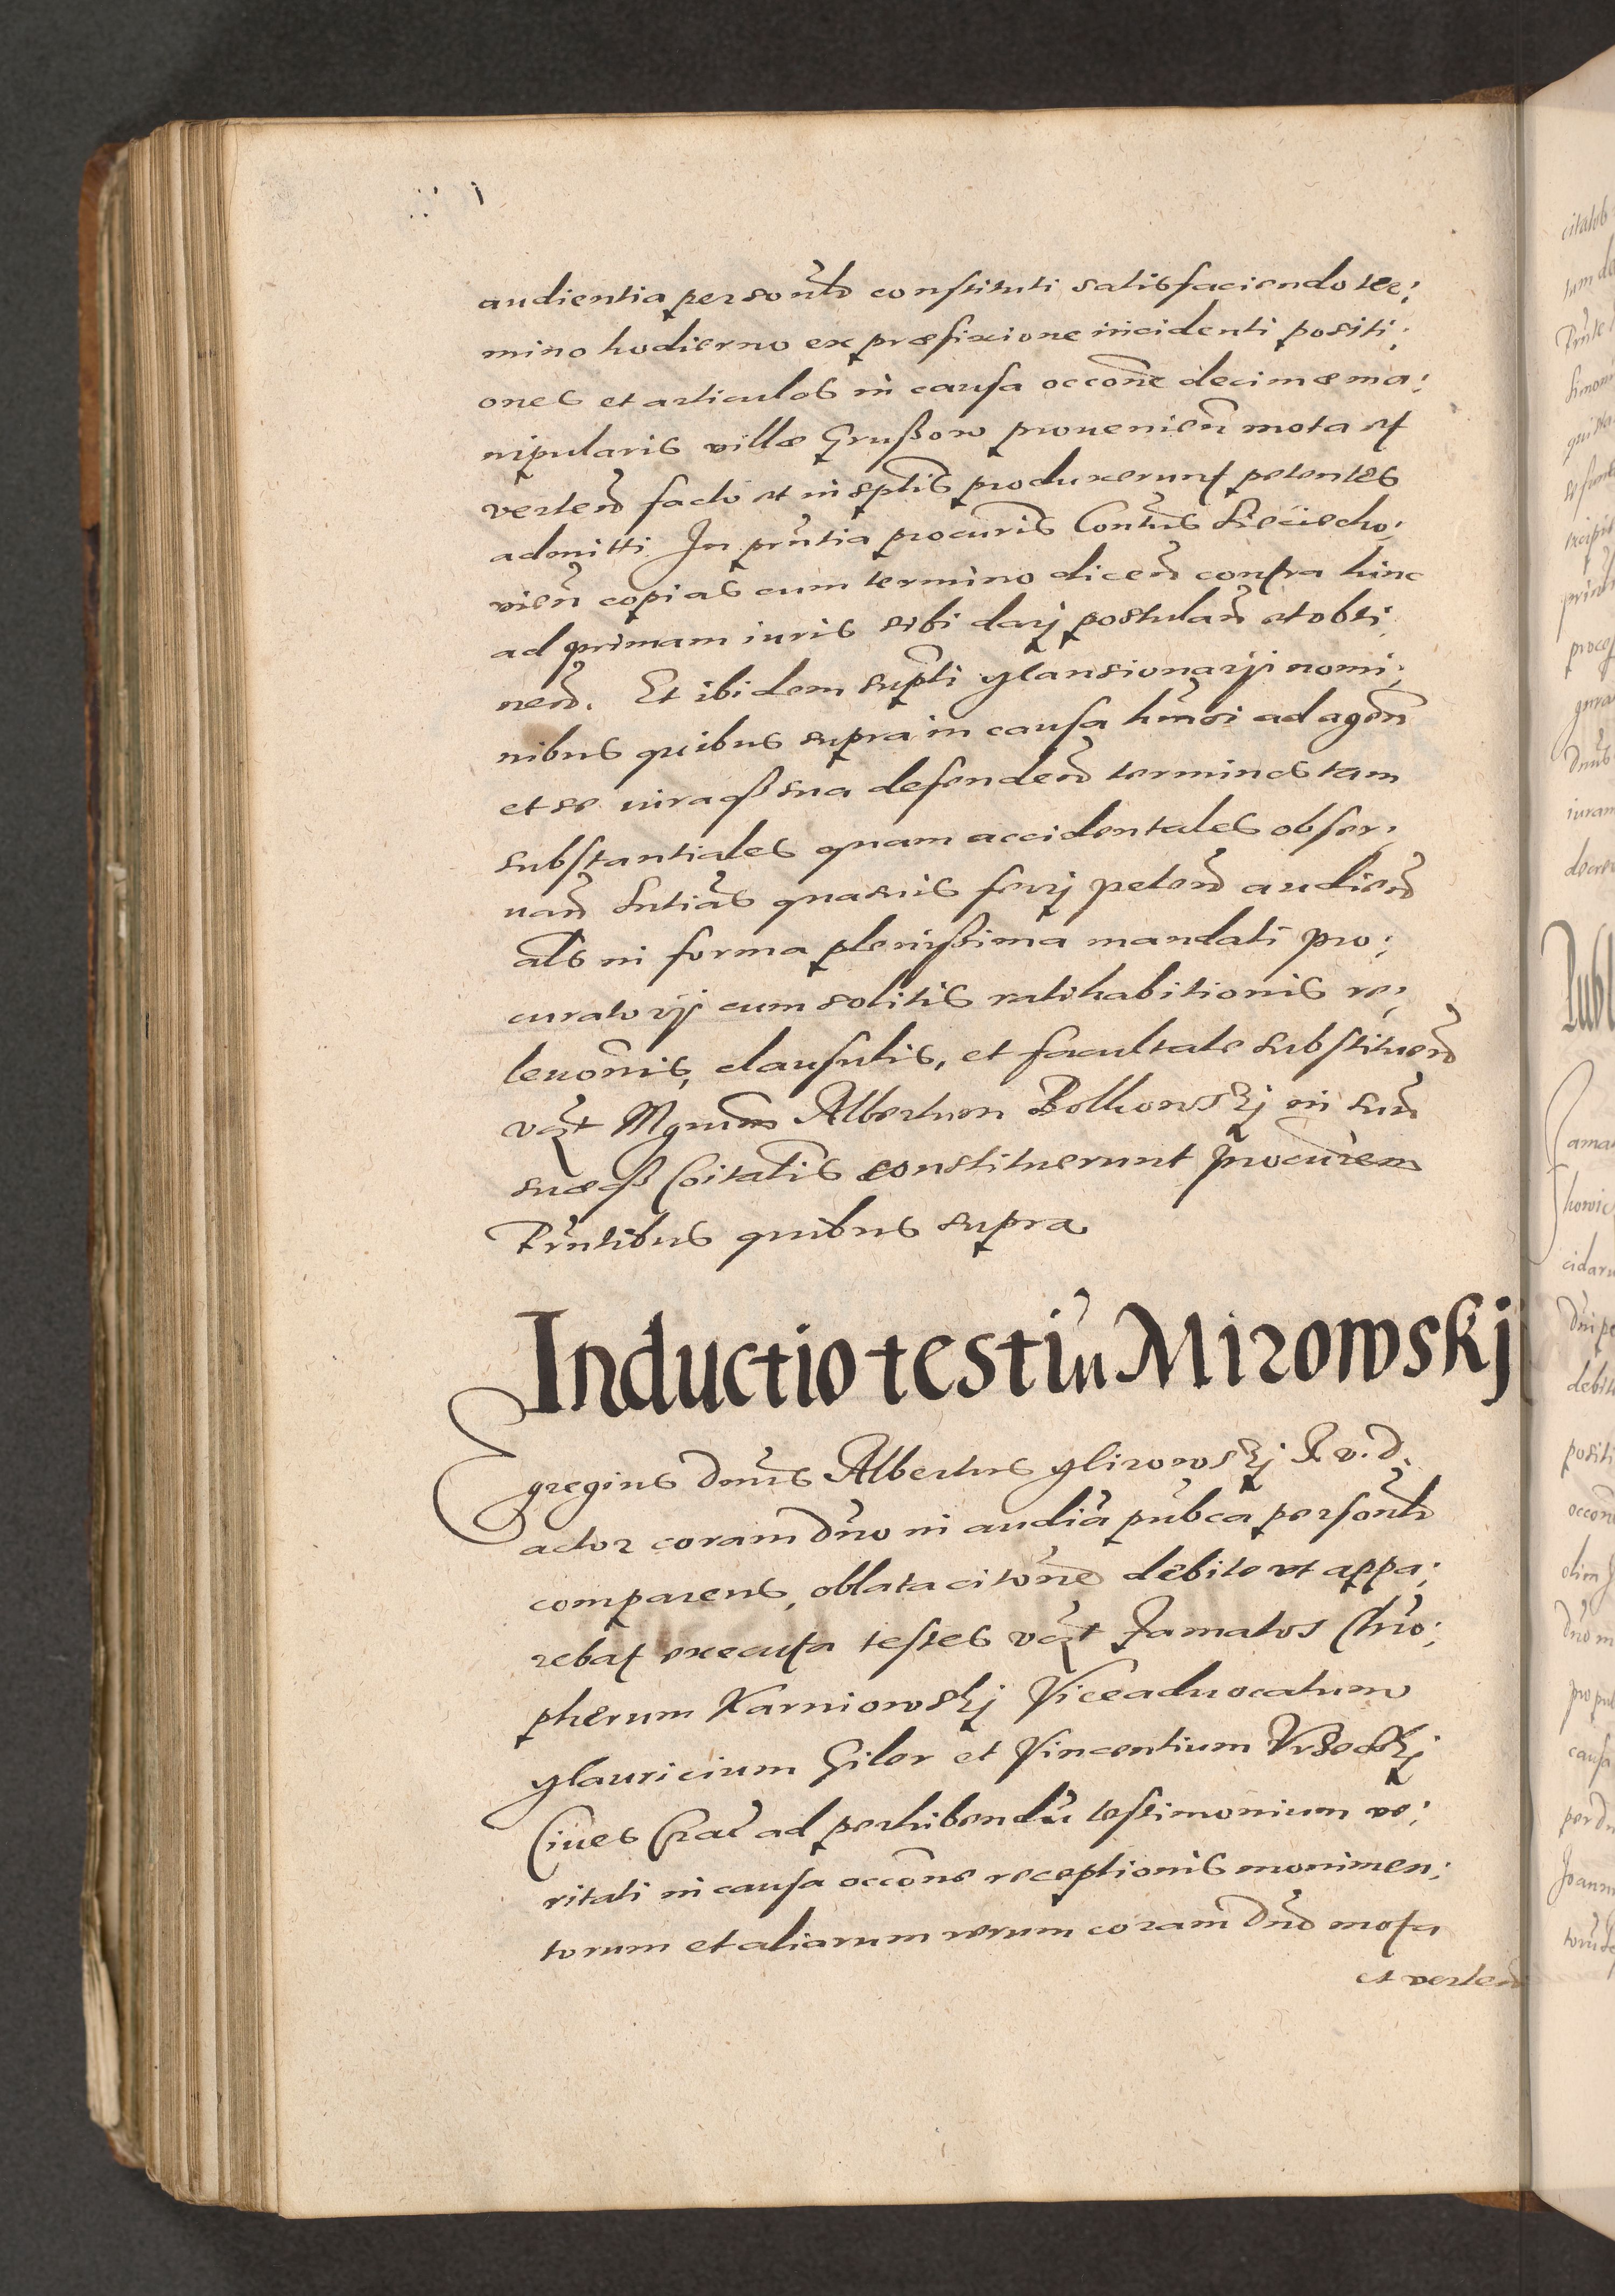 audientia personalr constituti satisfaciendo ter:
mino hodierno ex præfixione incidenti positi:
ones et articulos in causa occone decimæ ma:
nipularis villæ Grußow prouenien mota et
verten facto et in sptis produxerunt petentes
admitti. In pntia procuris Contus
vien copias cum termino dicen contra hinc
ad primam iuris sibi darj postulan et obti:
nen. Et ibidem supti Mansionarij nomi:
nibus quibus supra in causa hmoi ad agen
et se iuraqß sua defenden terminos tam
substantiales quam accidentales obser:
uan sntias quasuis ferrj peten audien
als in forma plenißima mandati pro:
curatorij cum solitis ratihabitionis re:
leuonis, clausulis, et facultate substituen
vzt Mgrum Albertum Bolkowskj in suu
suæqß Coitatis constituerunt procurem
Pntibus quibus supra
Inductio testiu Mirowskj
Egregius Dnus Albertus Mirowskj I. v. d.
actor coram Dno in audia pubca personalr
comparens, oblata citone debite vt appa:
rebat executa testes vzt Famatos Chro:
pherum Karniowskj Viceaduocatum
Mauricium Giler et Vincentium
Ciues Crac ad perhibendu testimonium ve:
ritati in causa occone receptionis monimen:
torum et aliarum rerum coram Dno mota
et verten